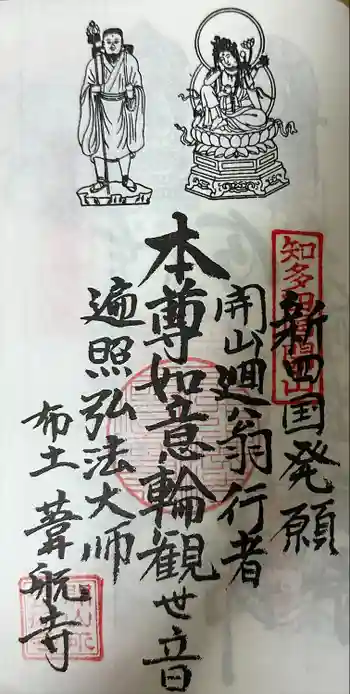 新四国発願
開山廻公翁行者
本尊如意輪観世音
遍照弘法大师
布土 葦航寺